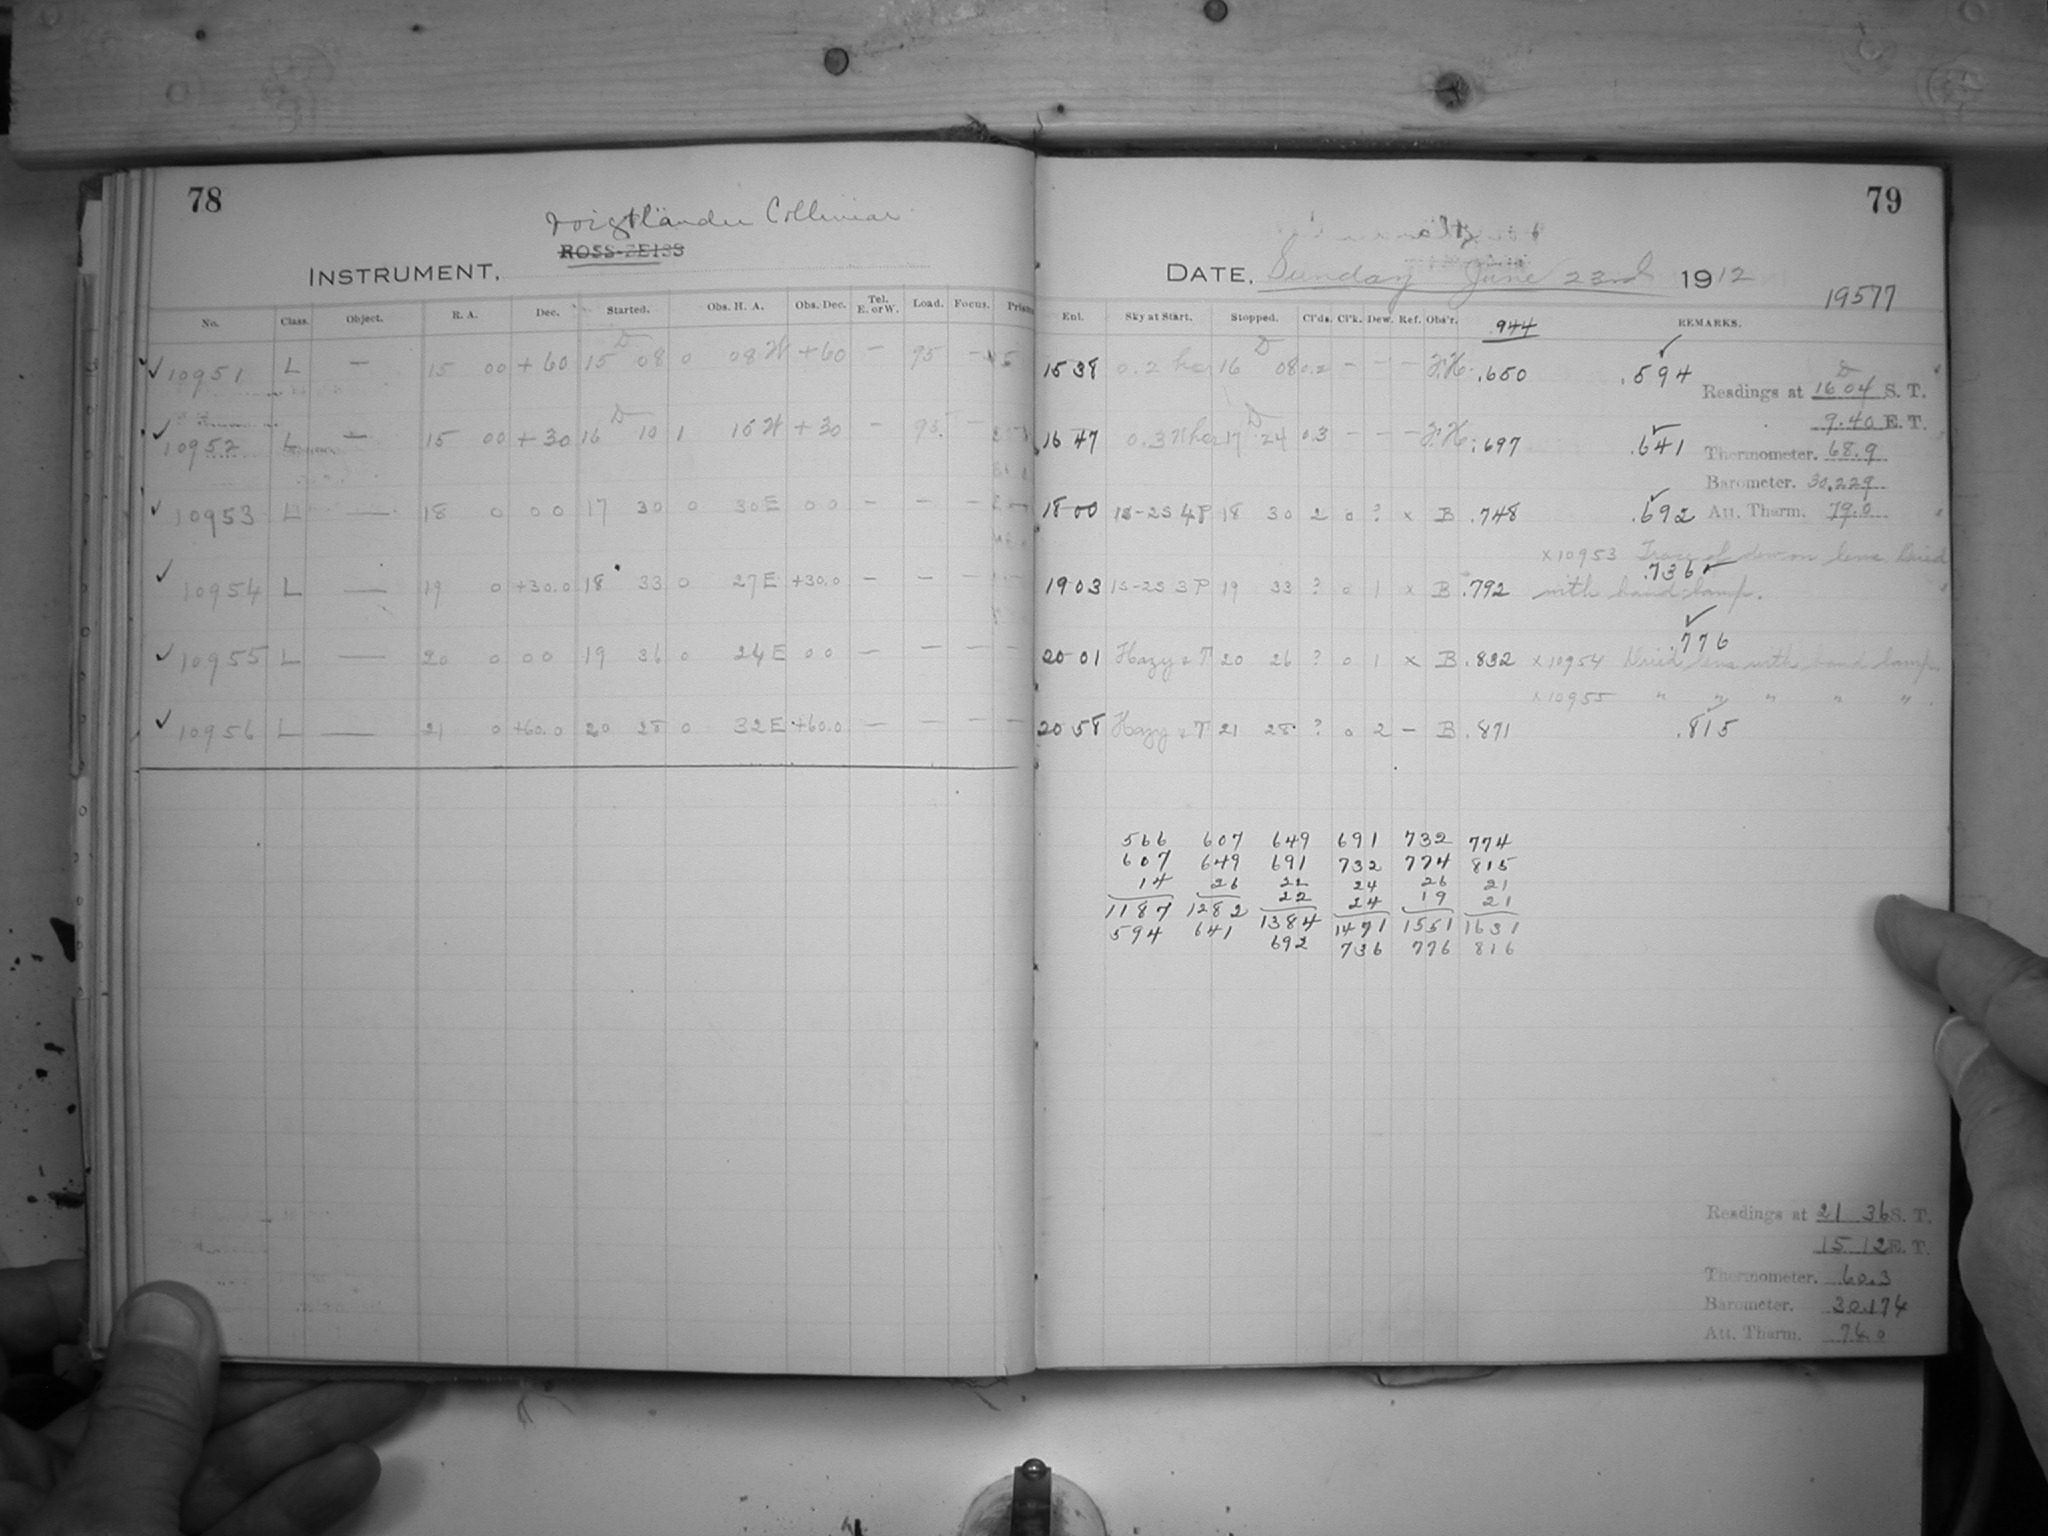 78
Voigtländer Collinear
ROSS-ZEISS
INSTRUMENT,
No. Class. Object. R. A. Dec. Started. Obs. H. A. Obs. Dec. Tel. E. or W. Load. Focus. Prism
✓ 10951 L — 15 00 + 60 15 08 0 08 W + 60 — 95 —
✓ 10952 L — 15 00 + 30 16 10 1 10 W + 30 — 95 —
✓ 10953 L — 18 0 0 0 17 30 0 30 E 0 0 — — —
✓ 10954 L — 19 0 +30.0 18 33 0 27 E +30.0 — — —
✓ 10955 L — 20 0 0 0 19 36 0 24 E 0 0 — — —
✓ 10956 L — 21 0 +60.0 20 28 0 32 E +60.0 — — —
79
DATE, Sunday June 23rd 1912
19577
Enl. Sky at Start. Stopped. Cl'ds. Cl'k. Dew. Ref. Obs'r. .944 REMARKS.
15 38 0.2 16 08 0.2 — — — .650 .594 ✓
Readings at 16 04 S. T.
9.40 E. T.
16 47 0.3 17 24 0.3 — — — .697 .641 ✓
Thermometer. 68.9
Barometer. 30.229
18 00 1S-2S 4P 18 30 2 0 ? x B .748 .692 ✓
Att. Tharm. 79.0
x 10953 Trace of dew on lens Dried
.736 ✓
19 03 1S-2S 3P 19 33 ? 0 1 x B .792 with hand lamp.
.776 ✓
20 01 Hazy & T 20 26 ? 0 1 x B .832 x 10954 Dried lens with hand lamp.
x 10955 " " " " " .
20 58 Hazy & T 21 28 ? 0 2 — B .871 .815 ✓
566 607 649 691 732 774
607 649 691 732 774 815
14 26 22 24 26 21
22 24 19 21
1187 1282 1384 1471 1551 1631
594 641 692 736 776 816
Readings at 21 36 S. T.
15 12 E. T.
Thermometer. 60.3
Barometer. 30.174
Att. Tharm. 76.0